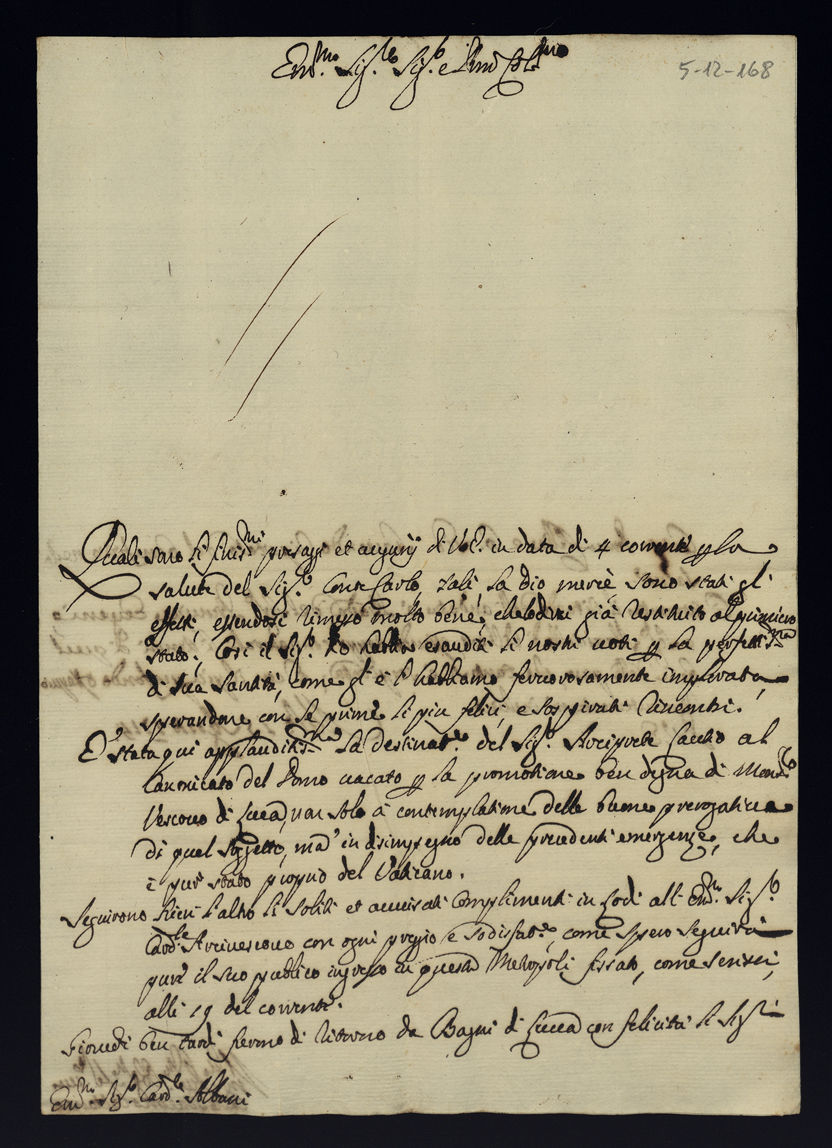 Em.mo Sig.re Sig.e e Pron Col.mo
5-12-168
Quali sono li presagi et augurij di V.E. in data di 4 corrente p la
salute del Sig.e Conte Carlo, tali, la Dio mercè sono stati gl'
effetti, essendosi rimesso molto bene, già restituito al
stato; Così il Sig.e Id.o habbia esauditi li nostri uoti p la
di Sua Santità, come gl'e l'habbiamo feruorosamente
sperandone con le prime li più felici, e sospirati riscontri.
E' stata qui la destinat.e del Sig.e Arciprete al
Canonicato del Domo uacato p la promotione ben degna di
Vescouo di non solo à contemplatione delle buone prerogatiue
di quel soggetto, mà in disimpegno delle precedenti emergenze, che
è pure stato proprio del Vaticano.
Seguirono l'altro li soliti et auuisati Complimenti in Lodi all' Em.mo Sig.e
Card.le Arciuescouo con ogni pregio e sodisfat.e, come spero seguirà
pure il suo publico ingresso in questa Metropoli fissato, come scrissi,
alli 19 del corrente.
Giouedì ben tardi fecero di ritorno da Bagni di Lucca con felicità li Sig.ri
Em.mo Sig.e Card.le Albani